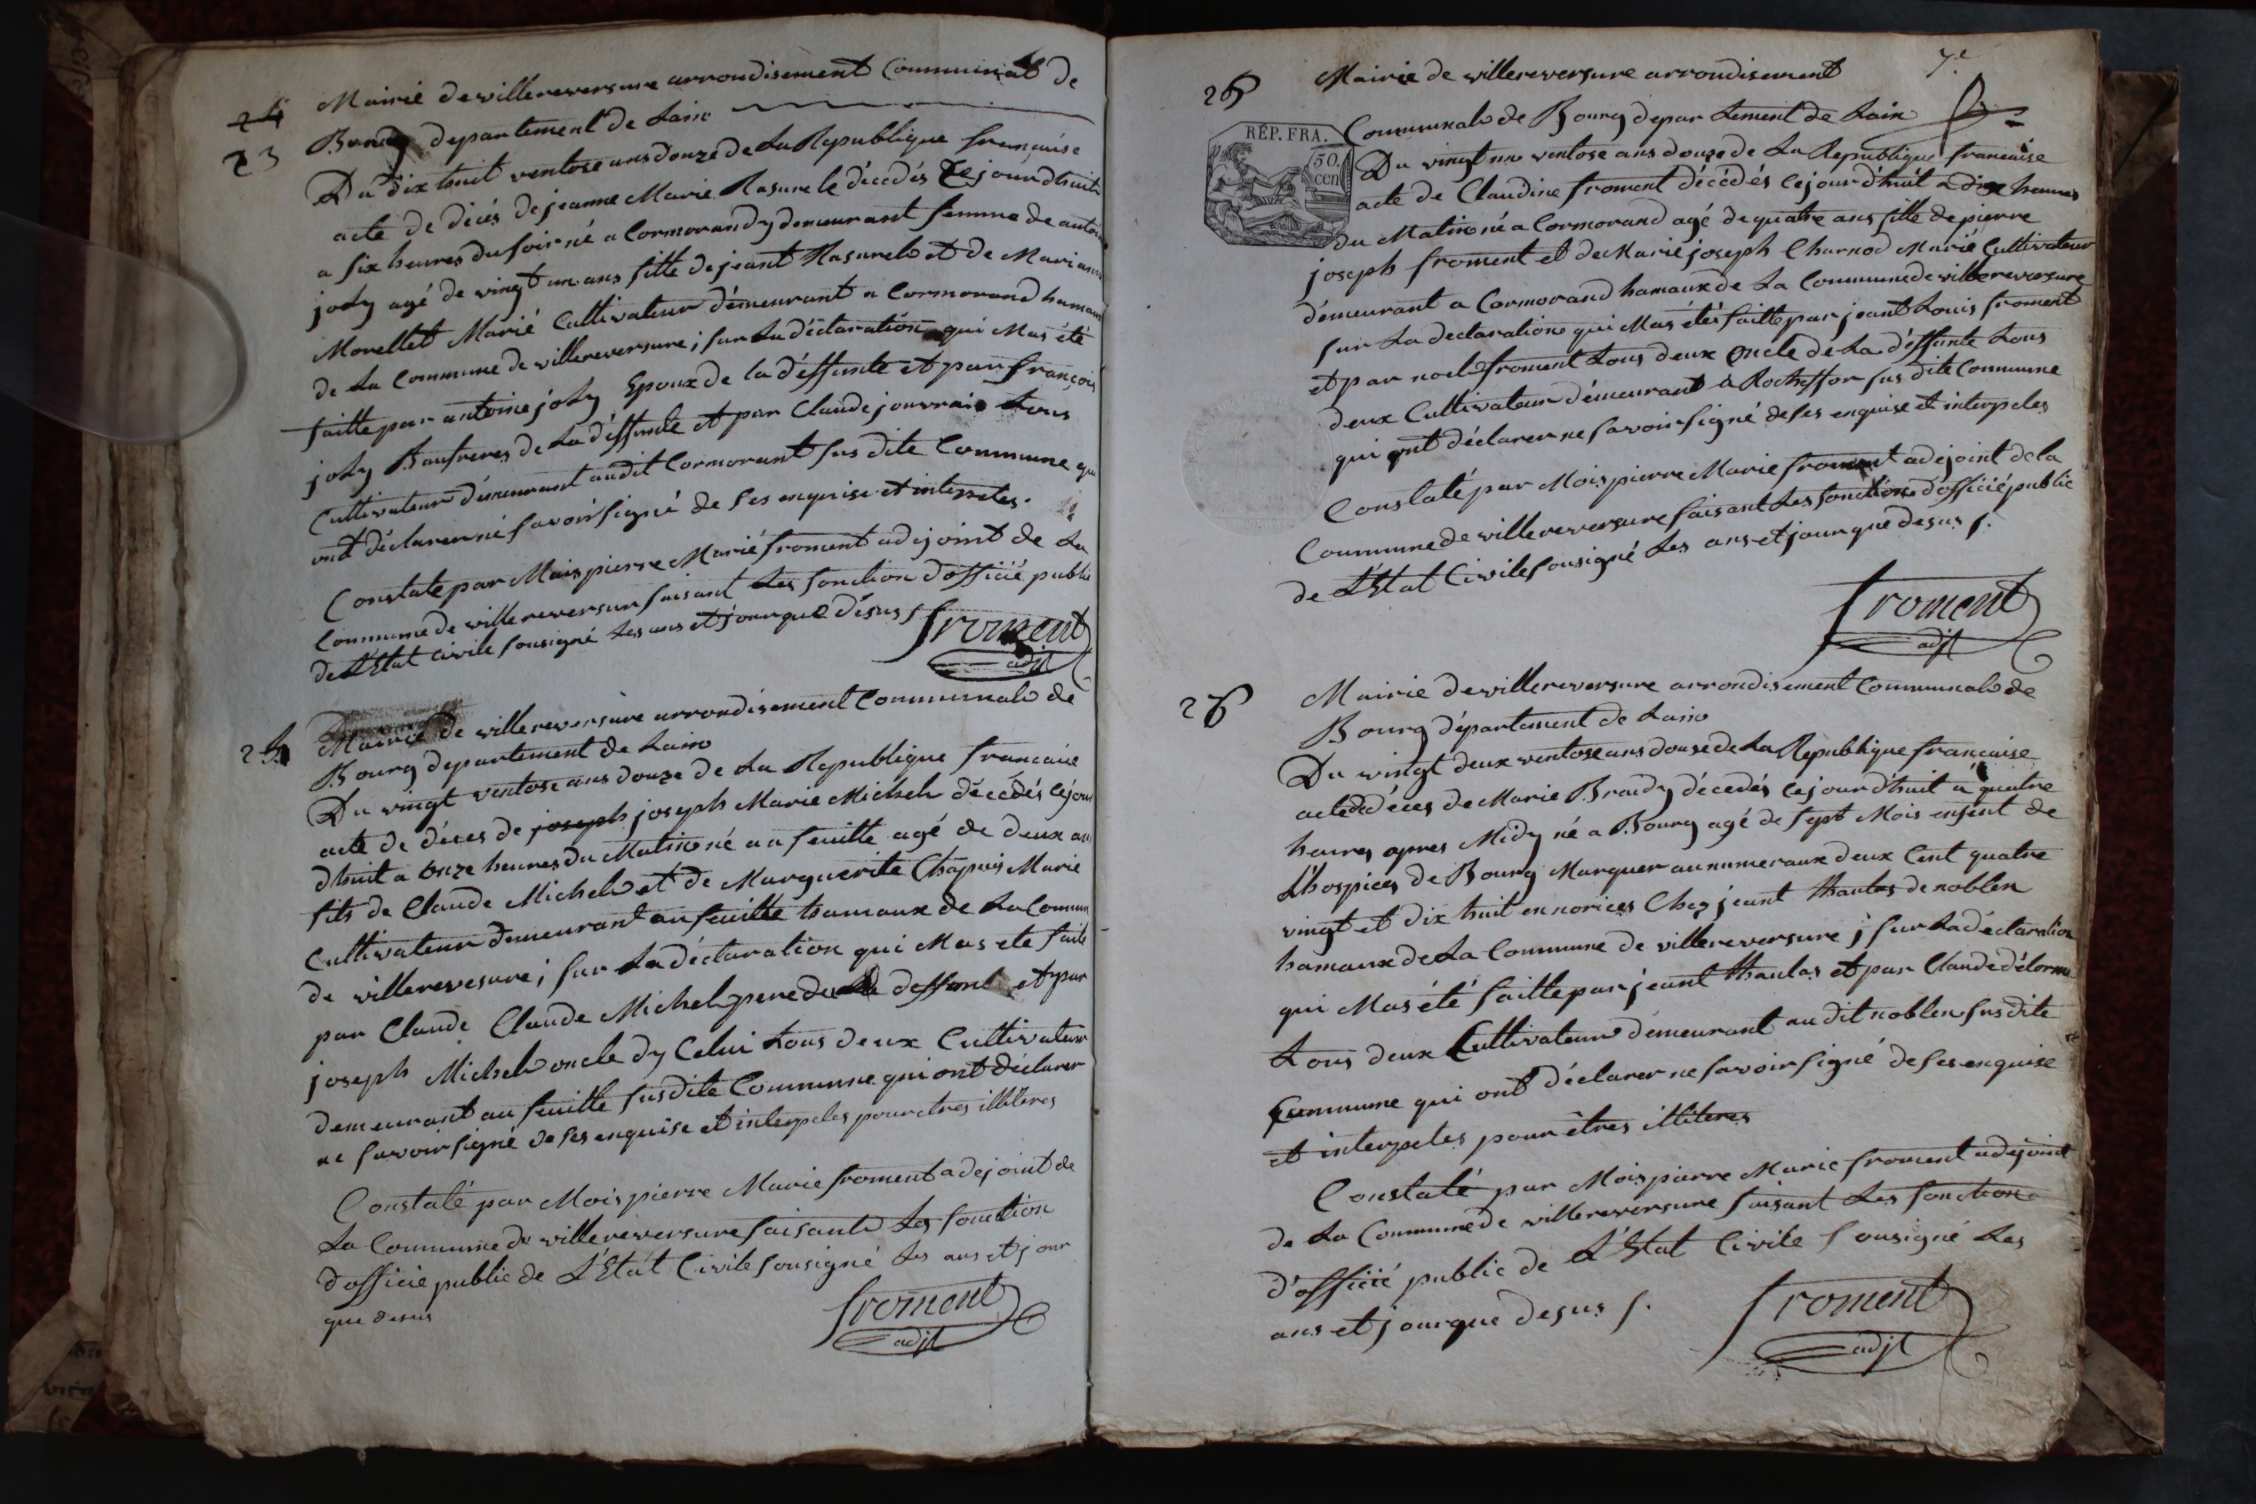 24 Mairie de villereversure arrondisement Communal de
23 Bourg departement de Lain
Du dix huit ventose ans douze de La Republique française
acte de décés de jeanne Marie Rasurel décédés Ce jourdhuit
a six heures du soir né a Cormorand y demeurant femme de antoine
joly agé de vingt un ans fille de jeant Rasurel et de Marianne
Morellet Marié Cultivateur démeurant a Cormorand hamaux
de La Commune de villereversure ; sur La déclaration qui Mas été
faitte par antoine joly Epoux de la déffunte et par françois
joly Baufreres de La déffunte et par Claude jouvrai tous
Cultivateur démeurant audit Cormorant sus dite Commune qui
ont déclarer né savoir signé de ses enquise et interpeles.
Constate par Mois pierre Marié froment adejoint de La
Commune de villereversure faisant Les fonction d'officié public
de L'Etat Civile sousigné Les ans et jour que désus /.
froment
adjt
24 Mairie de villereversure arrondisement Communale de
Bourg departement de Lain
Du vingt ventose ans douze de La Republique francaise
acte de déces de joseph joseph Marie Michel décédés Ce jour
dhuit a Onze heures du Matin né au feuille agé de deux ans
fils de Claude Michel et de Marguerite Chapuis Marie
Cultivateur Demeurant au feuille hamaux de La Commune
de villerevesure ; sur La déclaration qui Mas ete faite
par Claude Claude Michel pere du deffunt et par
joseph Michel oncle dy Celui tous deux Cultivateur
demeurant au feuille susdite Commune qui ont déclarer
ne savoir signé de ses enquise et interpeles pour etres illiteres
Constaté par Mois pierre Marie froment adejoint de
La Commune de villereversure faisant Les fonction
d'officié public de L'Etat Civile sousigné Les ans et jour
que desus
froment
adjt
7e
25 Mairie de villereversure arrondisement
Communale de Bourg departement de Lain
RÉP. FRA.
50 cen
Du vingt un ventose ans douze de La Republique francaise
acte de Claudine froment décédés Ce jour d'huit a dix heures
du Matin né a Cormorand agé de quatre ans fille de pierre
joseph froment et de Marie joseph Charnod Marié Cultivateur
démeurant a Cormorand hamaux de La Commune de villereversure
sur La declaration qui Mas étés faitte par jeant Louis froment
et par noel froment tous deux oncle de La déffunte tous
deux Cultivateur démeurant à Rocheffor sus dite Commune
qui ont déclarer ne savoir signé de ses enquise et interpeles
Constaté par Mois pierre Marie froment adejoint de la
Commune de villereversure faisant Les fonction d'officié public
de L'Etat Civile sousigné Les ans et jour que desus /.
froment
adjt
26 Mairie de villereversure arrondisement Communale de
Bourg département de Lain
Du vingt deux ventose ans douse de La Republique francaise
acte de déces de Marie Brardy décedés Ce jour d'huit a quatre
heures apres Midy né a Bourg agé de sept Mois enfent de
L'hospices de Bourg Marquer au numeraux deux Cent quatre
vingt et dix huit en norices Chez jeant thaulas de noblen
hamaux de La Commune de villereversure ; sur La déclaration
qui Mas été faitte par jeant thaulas et par Claude délorme
tous deux Cultivateur démeurant au dit noblen susdite
Commune qui ont déclarer ne savoir signé de ses enquise
et interpeles pour êtres illiteres
Constaté par Mois pierre Marie froment adejoint
de La Commune de villereversure faisant Les fonction
d'officié public de L'Etat Civile sousigné Les
ans et jour que desus /.
froment
adjt